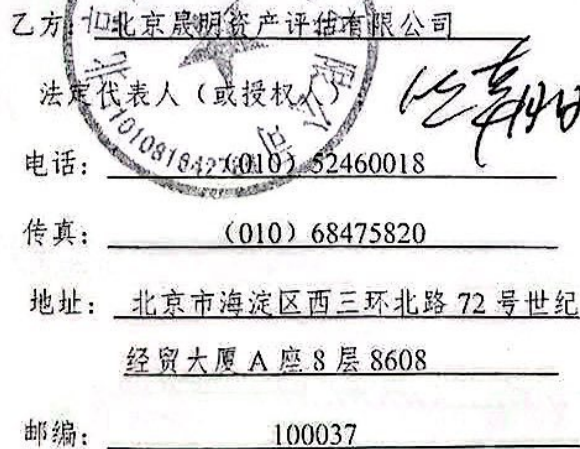 乙方：北京晟明资产评估有限公司
法定代表人（或授权人）
电话：（010）52460018
传真：（010）68475820
地址：北京市海淀区西三环北路 72 号世纪
经贸大厦 A 座 8 层 8608
邮编：100037